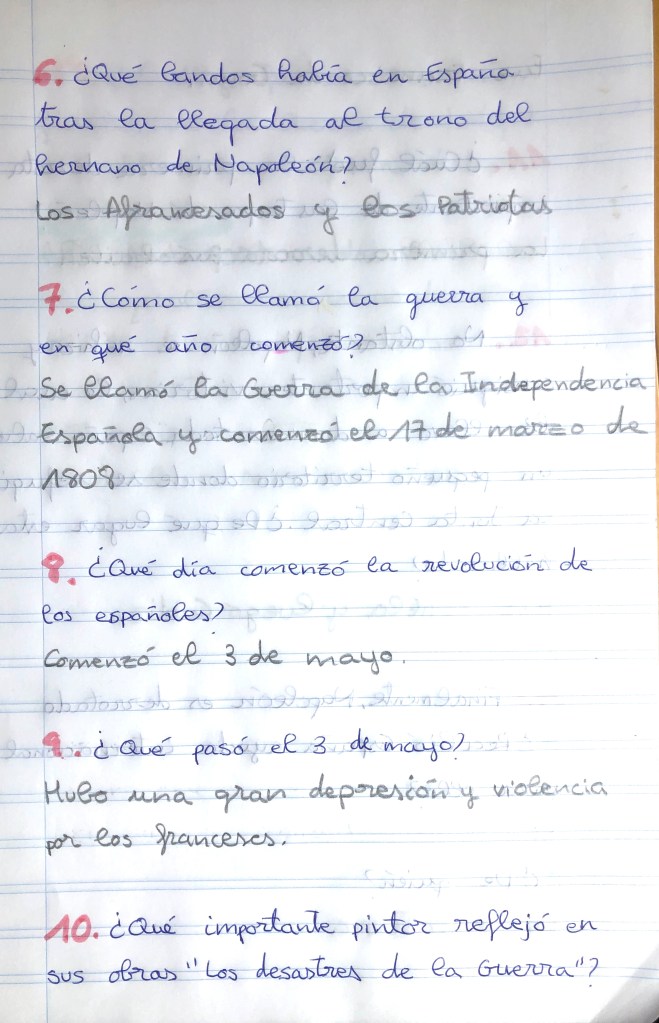 6. ¿Qué bandos había en España
tras la llegada al trono del
hermano de Napoleón?
Los Afrancesados y los Patriotas
7. ¿Cómo se llamó la guerra y
en qué año comenzó?
Se llamó la Guerra de la Independencia
Española y comenzó el 17 de marzo de
1808
8. ¿Qué día comenzó la revolución de
los españoles?
Comenzó el 3 de mayo.
9. ¿Qué pasó el 3 de mayo?
Hubo una gran depresión y violencia
por los franceses.
10. ¿Qué importante pintor reflejó en
sus obras "Los desastres de la Guerra"?